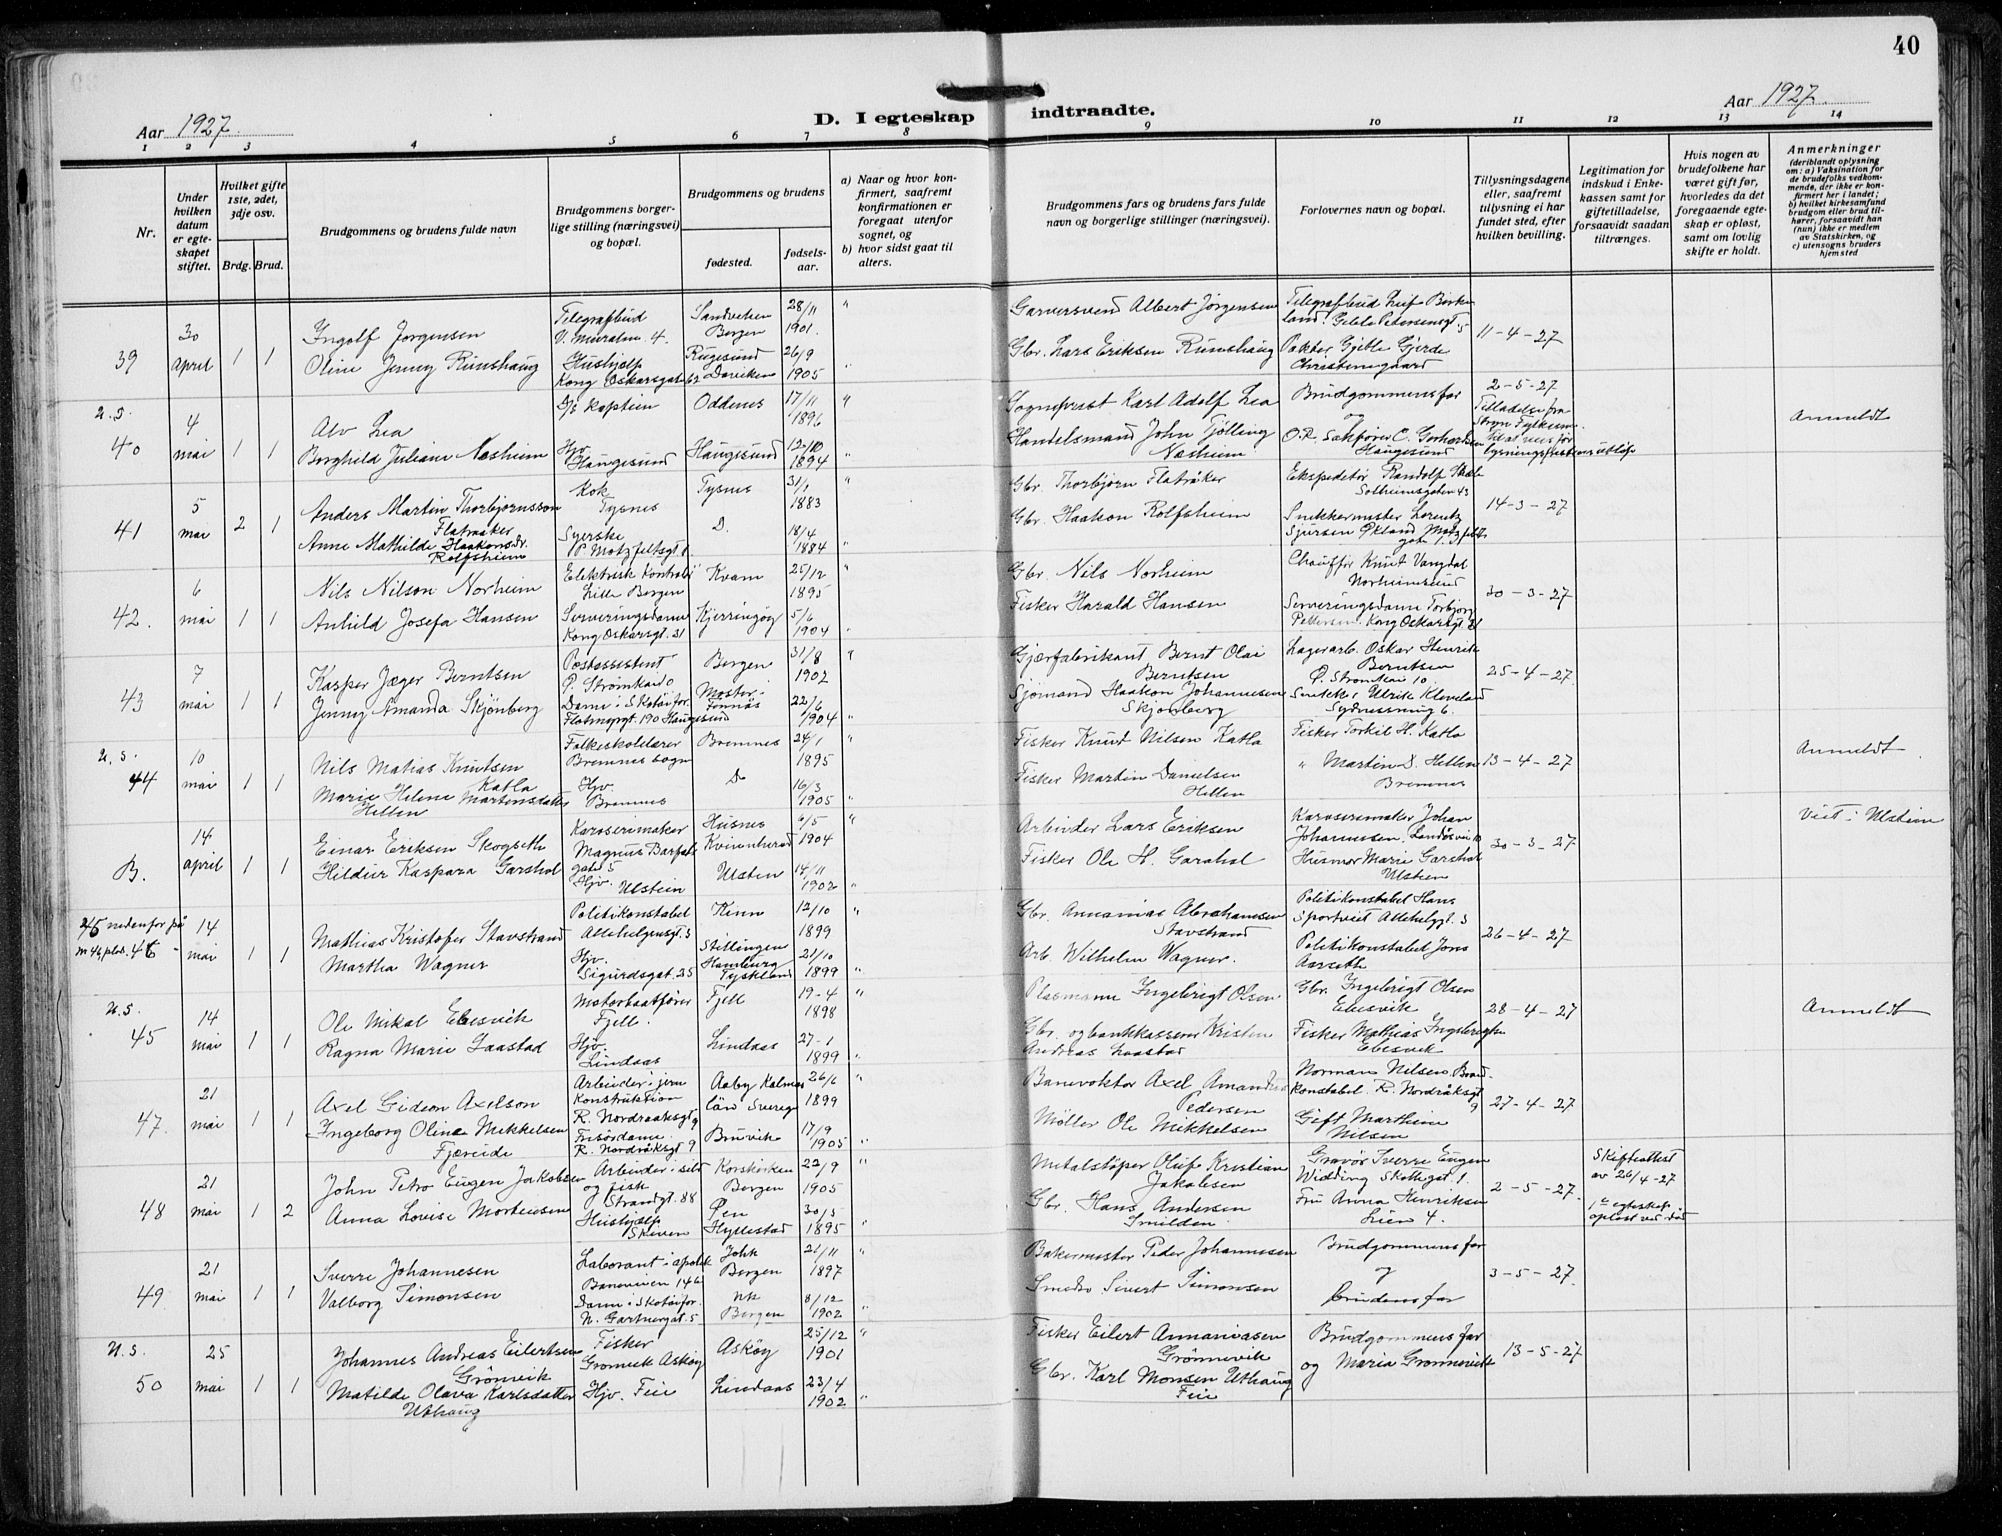 40
Aar 1927
D. I egteskap indtraadte.
Aar 1927
1 2 3 4 5 6 7 8 9 10 11 12 13 14
Nr.
Under hvilken datum er egteskapet stiftet.
Hvilket gifte 1ste, 2det, 3dje osv.
Brdg. Brud.
Brudgommens og brudens fulde navn
Brudgommens borgerlige stilling (næringsvei) og bopæl.
Brudgommens og brudens
fødested.
fødselsaar.
a) Naar og hvor konfirmert, saafremt konfirmationen er foregaat utenfor sognet, og
b) hvor sidst gaat til alters.
Brudgommens fars og brudens fars fulde navn og borgerlige stillinger (næringsvei).
Forlovernes navn og bopæl.
Tillysningsdagene eller, saafremt tillysning ei har fundet sted, efter hvilken bevilling.
Legitimation for indskud i Enkekassen samt for giftetilladelse, forsaavidt saadan tiltrænges.
Hvis nogen av brudefolkene har været gift før, hvorledes da det foregaaende egteskap er opløst, samt om lovlig skifte er holdt.
Anmerkninger
(deriblandt oplysning om: a) Vaksination for de brudefolks vedkommende, der ikke er konfirmert her i landet;
b) hvilket kirkesamfund brudgom eller brud tilhører, forsaavidt han (hun) ikke er medlem av Statskirken, og
c) utensogns bruders hjemsted
39 30 april 1 1
Ingolf Jorgensen
Oline Jenny Runshaug
Telegrafbud
V. Muralm. 4.
Hushjælp
Kong Oskarsgate 62
Sandviken Bergen 28/11 1901
Rugesund Daviken 26/9 1905
Garversvend Albert Jørgensen
Gbr. Lars Eriksen Runshaug
Telegrafbud Leif Birkeland. Geble Pedersensgt 5
Pakter Gjelle Gjerde
Christinegaard
11-4-27
u.s. 40 4 mai 1 1
Alv Lea
Borghild Juliane Næsheim
D/s kaptein
Hjv. Haugesund
Oddenes 17/11 1896
Haugesund 1894
Sogneprest Karl Adolf Lea
Handelsmand John Tjølling Næsheim
Brudgommens far
og
O.R. Sakfører C. Gerhardsen
Haugesund
2-5-27
Tilladelse fra
Anmeldt
41 5 mai 2 1
Anders Martin Thorbjørnsson Flatraaker
Anne Mathilde Haakonsdr. Rolfsheim
Kok
Tysnes
Syerske
P. Motzfeltsgt. 1
Tysnes 31/1 1883
D. 18/4 1884
Gbr. Thorbjørn Flatråker
Gbr. Haakon Rolfsheim
Ekspeditør Randolf
Solheimsgaten 43
Snekkermester Lorentz
Sjursen Økland Motzfeldts
gate 1.
14-3-27
42. 6 mai 1 1
Nils Nilson Norheim
Anhild Josefa Hansen
Elektrisk Kontrolør
Lille Bergen
Serveringsdame
Kong Oskarsgt. 31
Kvam 25/12 1895
Kjerringøy 5/6 1904
Gbr. Nils Norheim
Fisker Harald Hansen
Chauffør Knut Vangdal
Norheimsund
Serveringsdame Torbjørg
Pettersen. Kong Oskarsgt. 31
30-3-27
43 7 mai 1 1
Kasper Jæger Berntsen
Jenny Amanda Skjønberg
Postassistent
Ø. Strømkai 10
Dame i Skotøifor.
Flotmyrgt. 190 Haugesund
Bergen 31/8 1902
Moster 22/6 1904
Gjærfabrikant Bernt Olai Berntsen
Sjømand Haakon Johannesen Skjønberg
Lagerarb. Oskar Henrik Berntsen
Ø. Strømkai 10.
Snekker Ulrik Kleveland
Sydnessmug 6.
25-4-27
u.s. 44 10 mai 1 1
Nils Matias Knutsen Katla
Marie Helene Martinsdatter Hellen
Folkeskolelærer
Bremnes sogn
Hjv.
Bremnes
Bremnes 24/1 1895
D 16/3 1905
Fisker Knud Nilsen Katla
Fisker Martin Danielsen Hellen
Fisker Torkil H. Katla
" Martin D. Hellen
Bremnes
13-4-27
Anmeldt
B. 14 april 1 1
Einar Eriksen Skogseth
Hildur Kaspara Garshol
Karosserimaker
Magnus Barfots
gate 5
Hjv. Ulstein
Husnes Kvinnherad 6/5 1904
Ulsten 14/11 1902
Arbeider Lars Eriksen
Fisker Ole H. Garshol
Karosserimaker Johan
Johannessen. Landåsvei
Husmor Marie Garshol
Ulstein
30-3-27
Viet i Ulstein
46 nedenfor på
14 mai 1 1
Mathias Kristofer Stavstrand
Martha Wagner
Politikonstabel
Allehelgensgt. 3
Hjv.
Sigurdsgat. 25
Kinn 12/10 1899
Stillingen Hamburg Tyskland 21/10 1899
Gbr. Annanias Abrahamsen Stavstrand
Arb. Wilhelm Wagner.
Politikonstabel Hans
Sportveit Allehelgt. 3
Politikonstabel Jons
Aarseth
26-4-27
u.s. 45 14 mai 1 1
Ole Mikal Ebesvik
Ragna Marie Laastad
Motorbaatfører
Fjell.
Hjv.
Lindaas
Fjell 19-4 1898
Lindaas 27-1 1899
Plasmann Ingebrigt Olsen
Gbr. og bankkasserer Kristen
Andreas Laastad
Gbr. Ingebrigt Olsen
Ebesvik
Fisker Mathias Ingebrigtsen
Ebesvik
28-4-27
Anmeldt
47. 21 mai 1 1
Axel Gideon Axelson
Ingeborg Oline Mikkelsen Fjæreide
Arbeider i jern
konstruktion
R. Nordraaksgt 9
Frisørdame
R. Nordråksgt 9
Aaby Kalmar län Sverige 26/6 1899
Bruvik 17/9 1905
Banevokter Axel Amandus Pedersen
Møller Ole Mikkelsen
Norman Nilsen. Brand-
konstabel. R. Nordråksgt 9
Gift Marthine
Nilsen
27-4-27
48 21 mai 1 2
John Petro Eugen Jakobsen
Anna Lovise Mortensen
Arbeider i sild
og fisk
Strandgt. 88
Hushjælp
Skiven
Korskirken Bergen 22/9 1905
Øen Hyllestad 30/3 1895
Metalstøper Oluf Kristian Jakobsen
Gbr. Hans Andersen Smilden
Gravør Sverre Eugen
Widding Skottegat. 1.
Fru Anna Henriksen
Lien 4.
2-5-27.
Skifteattest
av 26/4-27
1ste egteskap
opløst ved død
49 21 mai 1 1
Sverre Johannesen
Valborg Simonsen
Laborant i apotek
Baneveien 146
Dame i Skotøifor.
N. Gartnergat. 5
Johk Bergen 21/11 1897
Nk Bergen 8/12 1902
Bakermester Peder Johannesen
Smed Sivert Simonsen
Brudgommens far
og
brudens far
3-5-27.
U.S. 50 25 mai 1 1
Johannes Andreas Eilertsen Grönvik
Matilde Olava Karlsdatter Uthaug
Fisker
Grönvik Asköy
Hjv. Feie
Asköy 25/12 1901
Lindaas 23/4 1902
Fisker Eilert Annaniasen Grönnevik
Gbr. Karl Monsen Uthaug Feie
Brudgommens far
og Maria Grönnevik
13-5-27